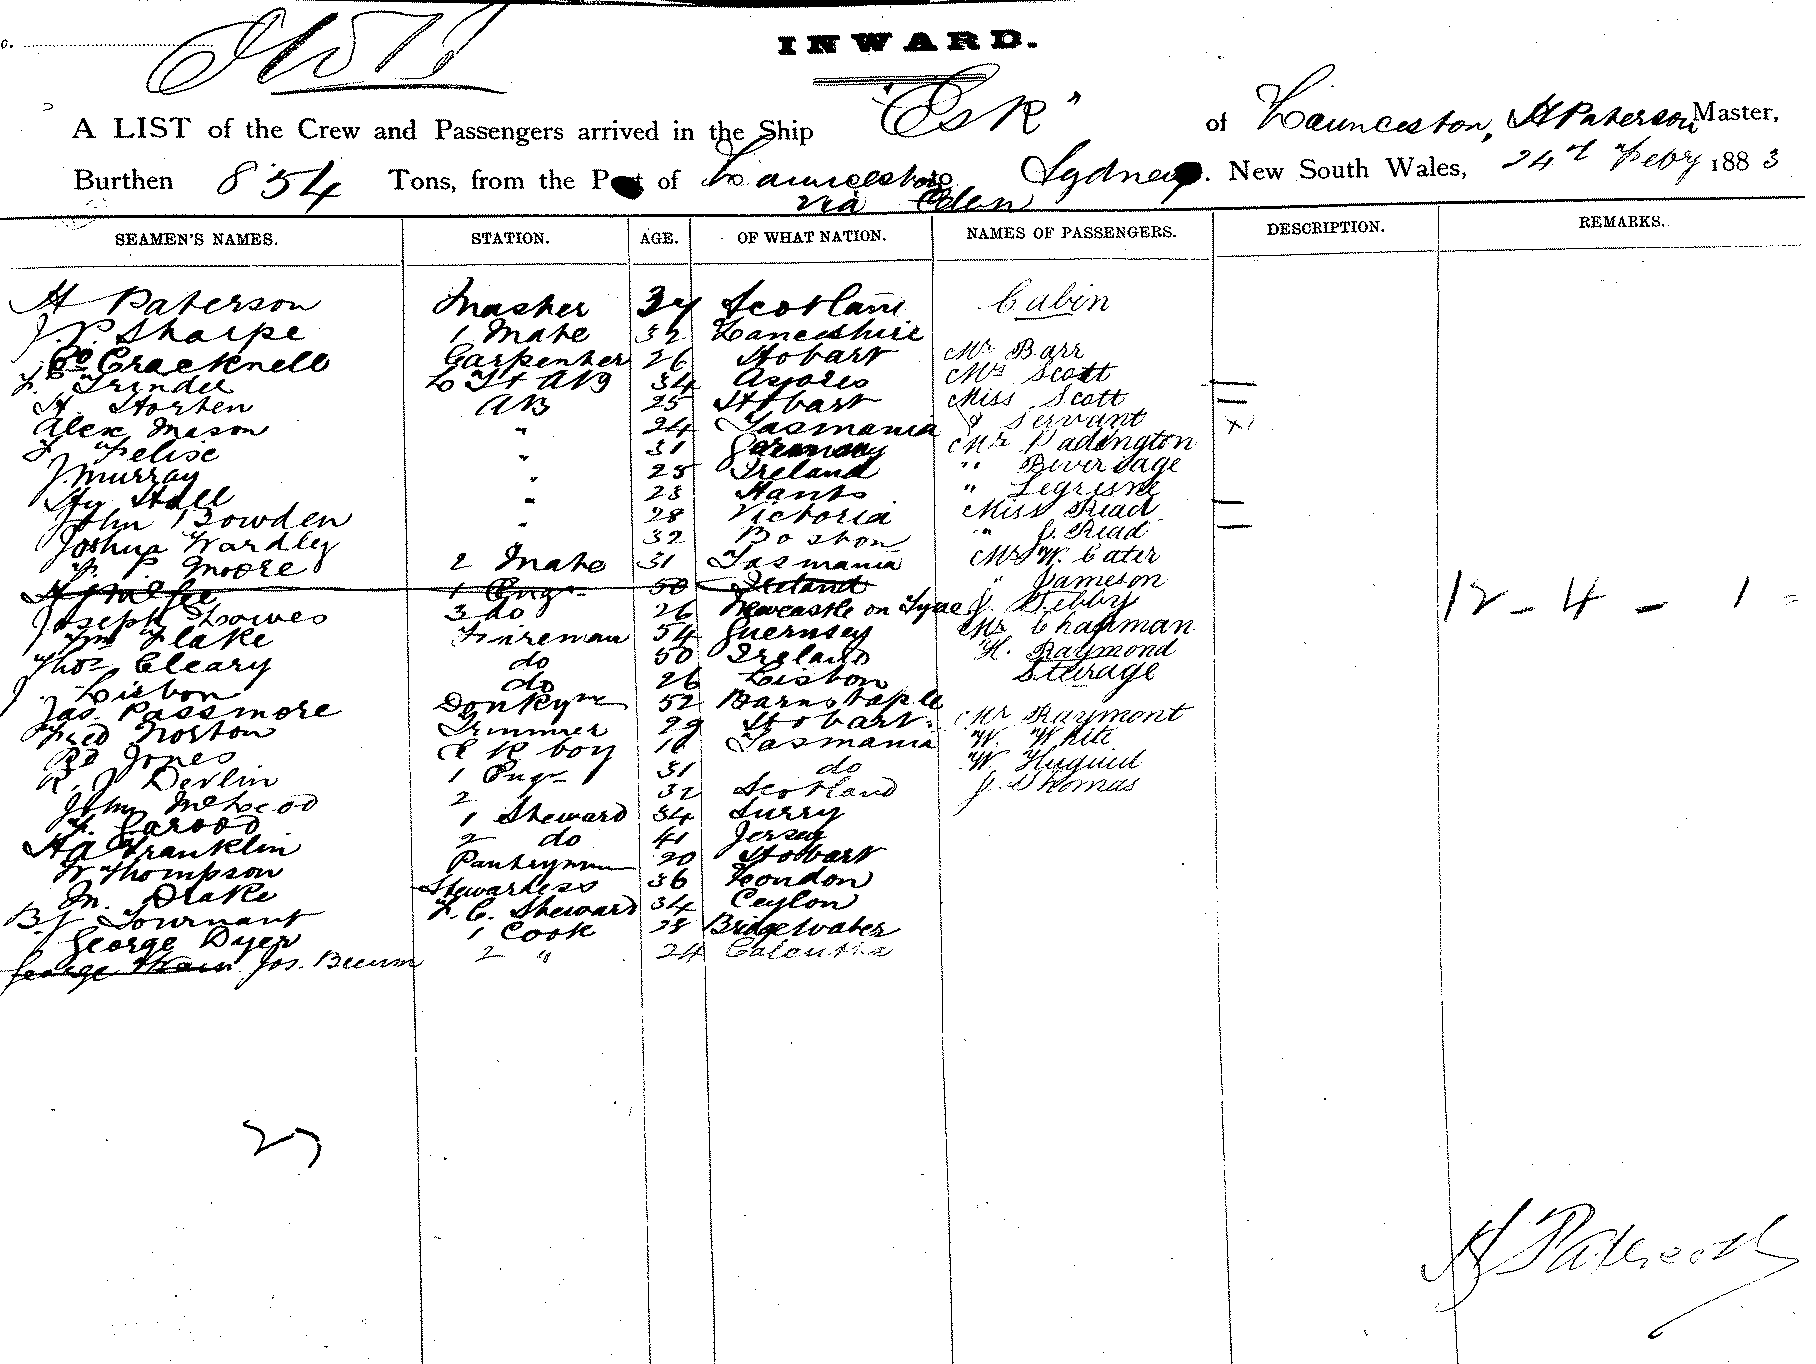 INWARD.
A LIST of the Crew and Passengers arrived in the Ship "Esk" of Launceston, H Paterson Master,
Burthen 854 Tons, from the Port of Launceston to Sydney. New South Wales, 24th Feby 1883
via Eden
SEAMEN'S NAMES. STATION. AGE. OF WHAT NATION. NAMES OF PASSENGERS. DESCRIPTION. REMARKS.
H Paterson Master Scotland Cabin
J. P. Sharpe 1 Mate 32 Lancashire
Cracknell Carpenter 26 Hobart Mr Barr
Trindle AB 34 Azores Mrs Scott
H. Horten AB 25 Hobart Miss Scott
Alex Mason " 24 Tasmania & Servant
Felise " 31 Germany Mr Padington
J. Murray " 25 Ireland " Beversage
Hy Hall " 23 Hants "
John Bowden " 28 Victoria Miss Read
Joshua Wardley 32 Boston " J. Read
P. Moore 2 Mate 31 Tasmania Mr W. Cater
1 Engr 50 Ireland " Jameson
Joseph Howes 3 do 26 Newcastle on Tyne J. Tebby
Wm Flake Fireman 54 Guernsey Mr Chapman
Thos Cleary do 50 Ireland H. Raymond
J. Lisbon do 26 Lisbon Steerage
Jas. Passmore Donkymn 52 Barnstaple
Fred Norton Trimmer 29 Hobart. Mr Raymont
Rd Jones E R boy Tasmania W. White
R. J Devlin 1 Engr 31 do W. Huguid
John McLeod 2 " 32 Scotland J. Thomas
Garood 1 Steward 34 Surry
H A Franklin 2 do 41 Jersey
W Thompson Pantrymn 20 Hobart
M. Drake Stewardess 36 London
B J Tournant F. C. Steward 34 Ceylon
George Dyer 1 Cook 28 Bridgewater
George Jos. 2 " 24 Calcutta
12 - 4 - 1
27
H Paterson